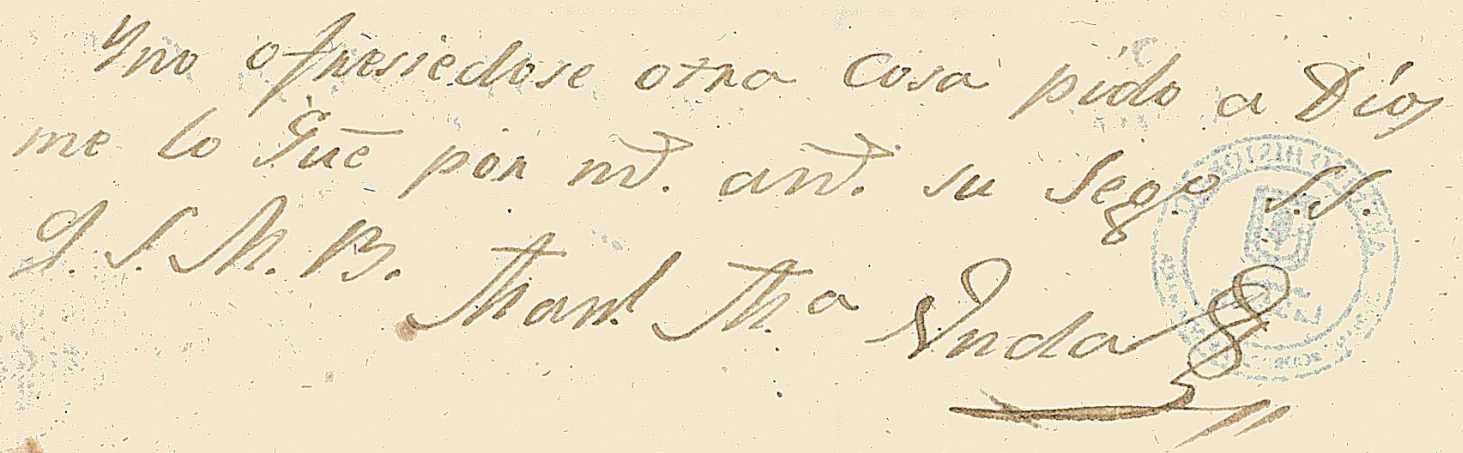 Yno ofresiedose otra Cosa pido a Dios
me lo Gūe por m.ˢ an.ˢ su Seg.º S.S.
Q. S. M. B.
Man.l M.ª Unda